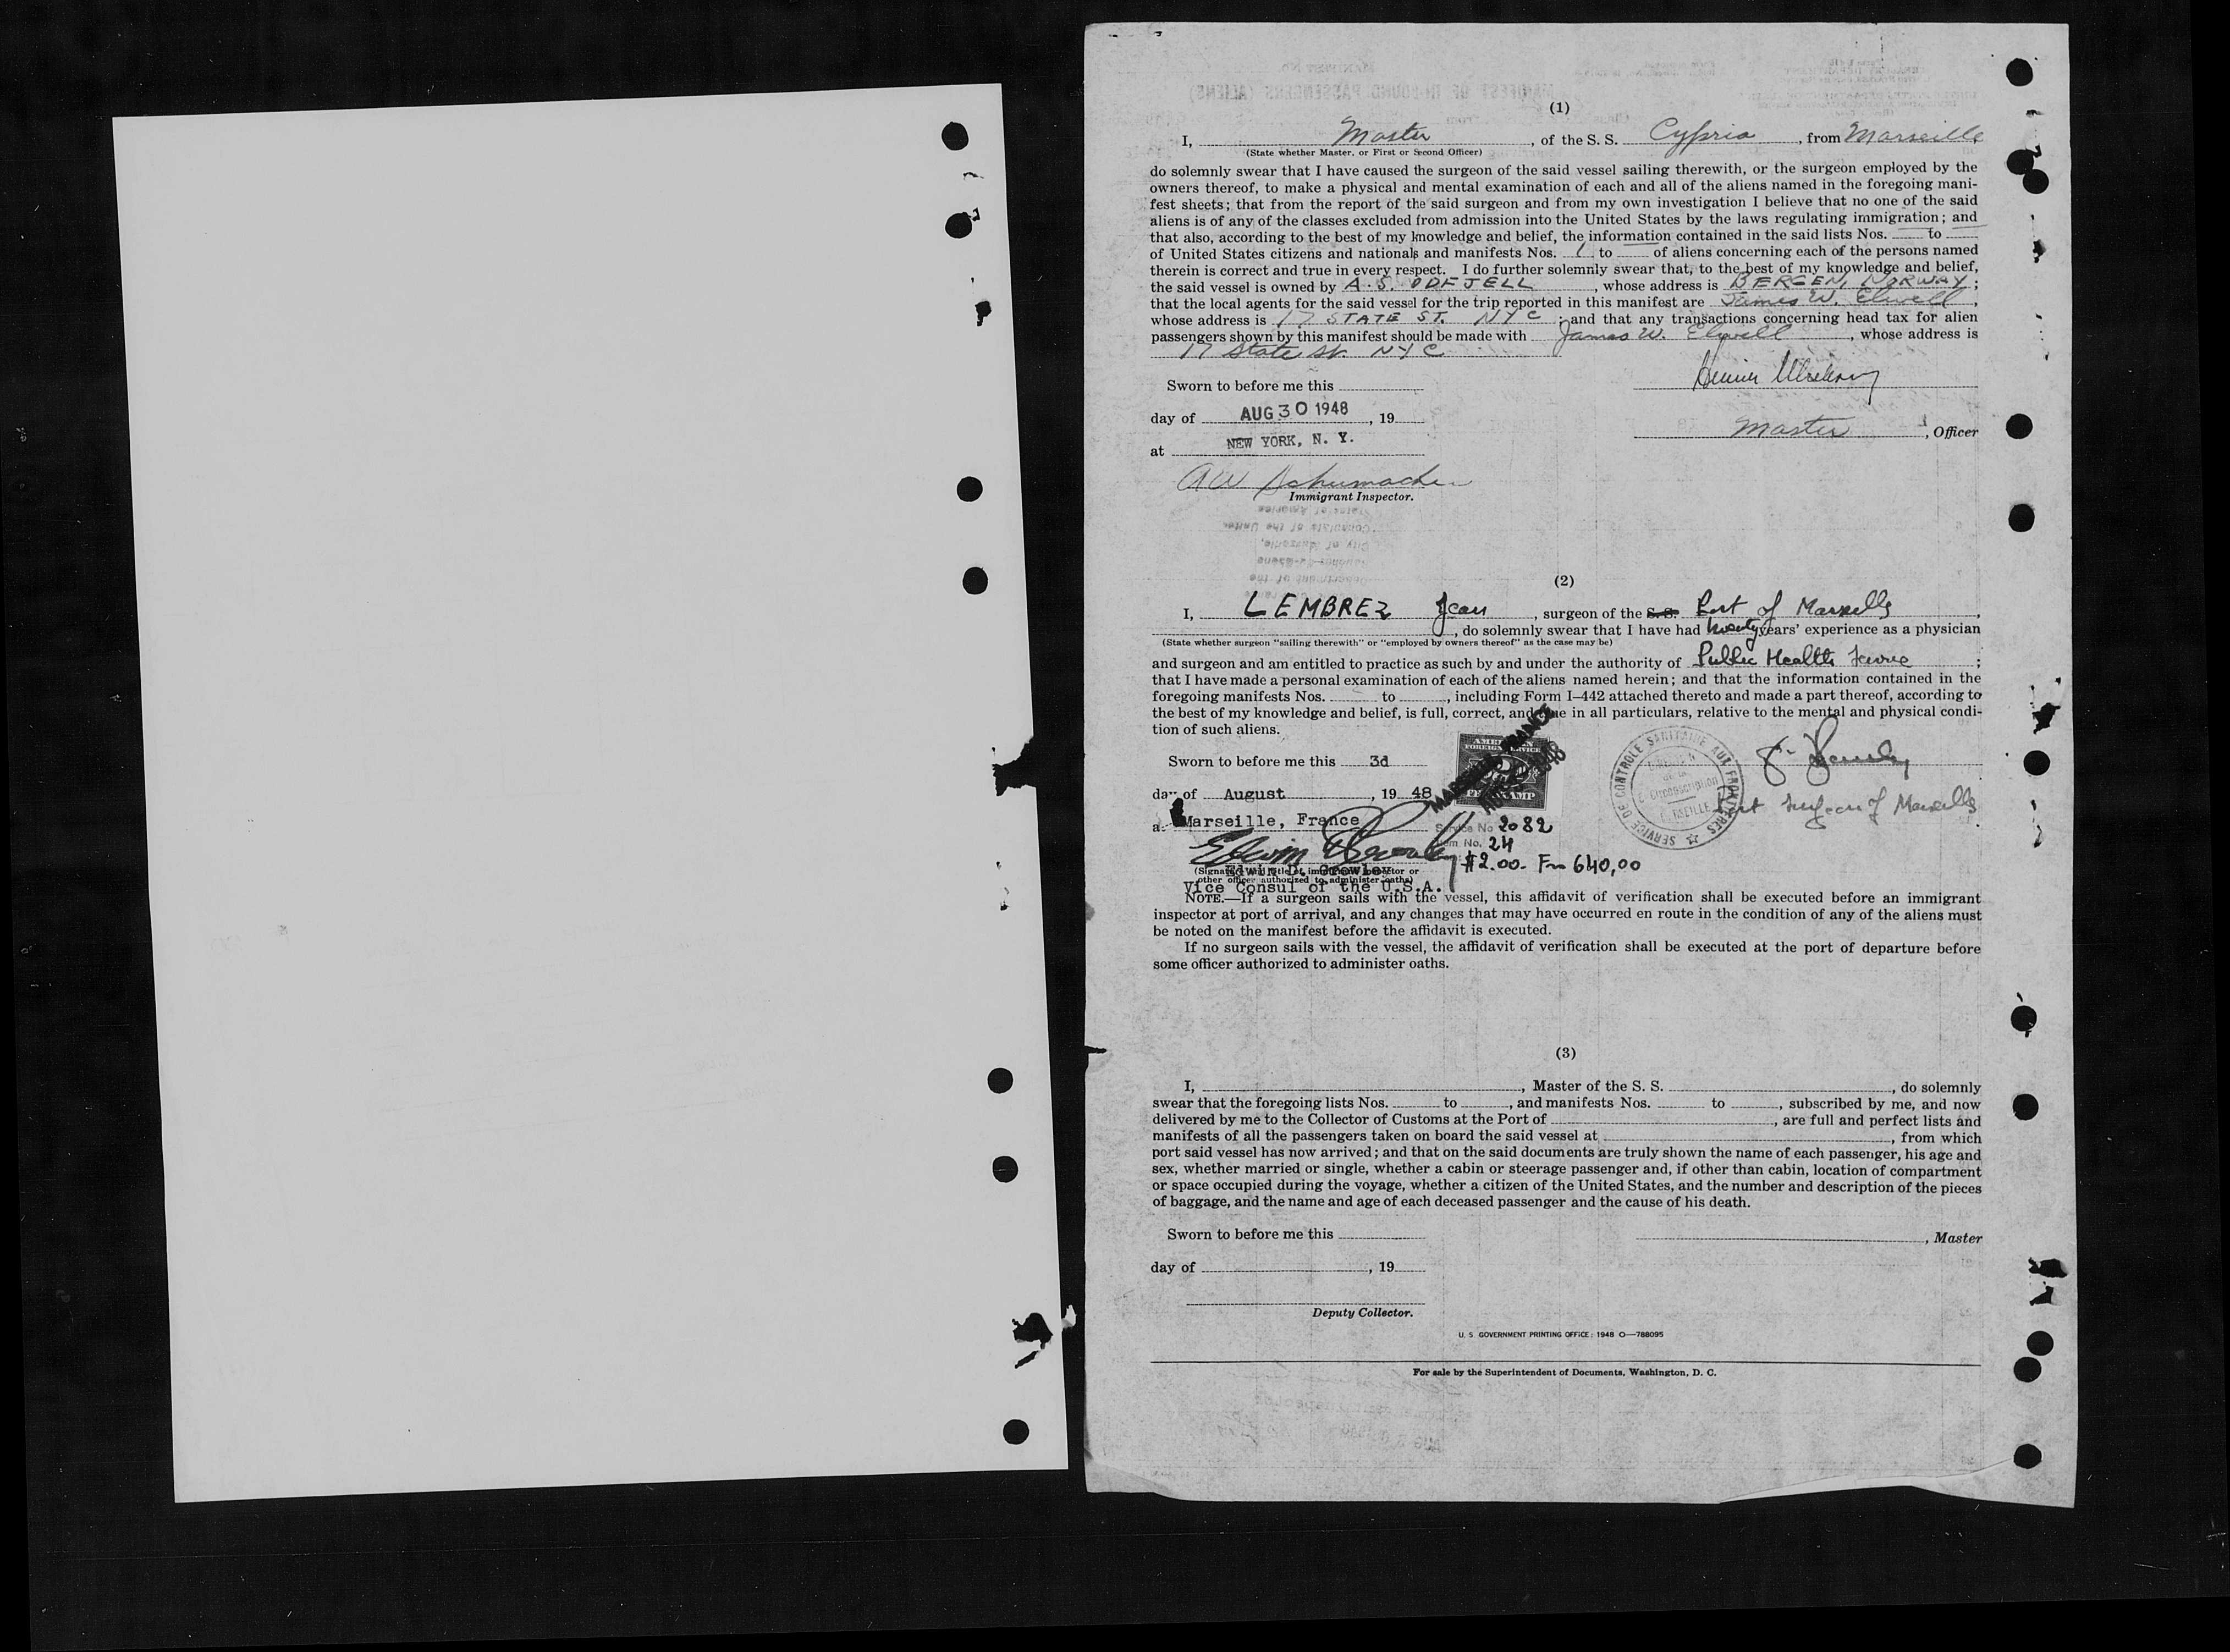 (1)
I, Master, of the S. S. Cypria, from Marseille
(State whether Master, or First or Second Officer)
do solemnly swear that I have caused the surgeon of the said vessel sailing therewith, or the surgeon employed by the
owners thereof, to make a physical and mental examination of each and all of the aliens named in the foregoing mani-
fest sheets; that from the report of the said surgeon and from my own investigation I believe that no one of the said
aliens is of any of the classes excluded from admission into the United States by the laws regulating immigration; and
that also, according to the best of my knowledge and belief, the information contained in the said lists Nos. to
of United States citizens and nationals and manifests Nos. 1 to of aliens concerning each of the persons named
therein is correct and true in every respect. I do further solemnly swear that, to the best of my knowledge and belief,
the said vessel is owned by A.S. ODFJELL, whose address is BERGEN, NORWAY;
that the local agents for the said vessel for the trip reported in this manifest are James W. Elwell,
whose address is 17 STATE ST. NYC; and that any transactions concerning head tax for alien
passengers shown by this manifest should be made with James W. Elwell, whose address is
17 State St. NYC
Sworn to before me this
day of AUG 30 1948, 19
Master, Officer
at NEW YORK, N. Y.
A W Schumacher
Immigrant Inspector.
(2)
I, LEMBREZ Jean, surgeon of the S. S. Port of Marseille,
, do solemnly swear that I have had twenty years' experience as a physician
(State whether surgeon "sailing therewith" or "employed by owners thereof" as the case may be)
and surgeon and am entitled to practice as such by and under the authority of Public Health Service;
that I have made a personal examination of each of the aliens named herein; and that the information contained in the
foregoing manifests Nos. to, including Form I-442 attached thereto and made a part thereof, according to
the best of my knowledge and belief, is full, correct, and true in all particulars, relative to the mental and physical condi-
tion of such aliens.
MARSEILLE, FRANCE
AMERICAN
FOREIGN SERVICE
FEE STAMP
SERVICE DE CONTROLE SANITAIRE AUX FRONTIERES
Circonscription
MARSEILLE
Sworn to before me this 3d
day of August, 19 48
Port Surgeon of Marseille
at Marseille, France
Service No 2082
Item No. 24
$2.00 - Frs 640,00
(Signature and title of immigrant inspector or
other officer authorized to administer oaths)
Vice Consul of the U.S.A.
NOTE.—If a surgeon sails with the vessel, this affidavit of verification shall be executed before an immigrant
inspector at port of arrival, and any changes that may have occurred en route in the condition of any of the aliens must
be noted on the manifest before the affidavit is executed.
If no surgeon sails with the vessel, the affidavit of verification shall be executed at the port of departure before
some officer authorized to administer oaths.
(3)
I, , Master of the S. S. , do solemnly
swear that the foregoing lists Nos. to , and manifests Nos. to , subscribed by me, and now
delivered by me to the Collector of Customs at the Port of , are full and perfect lists and
manifests of all the passengers taken on board the said vessel at , from which
port said vessel has now arrived; and that on the said documents are truly shown the name of each passenger, his age and
sex, whether married or single, whether a cabin or steerage passenger and, if other than cabin, location of compartment
or space occupied during the voyage, whether a citizen of the United States, and the number and description of the pieces
of baggage, and the name and age of each deceased passenger and the cause of his death.
Sworn to before me this
, Master
day of , 19
Deputy Collector.
U. S. GOVERNMENT PRINTING OFFICE: 1948 O—788095
For sale by the Superintendent of Documents, Washington, D. C.